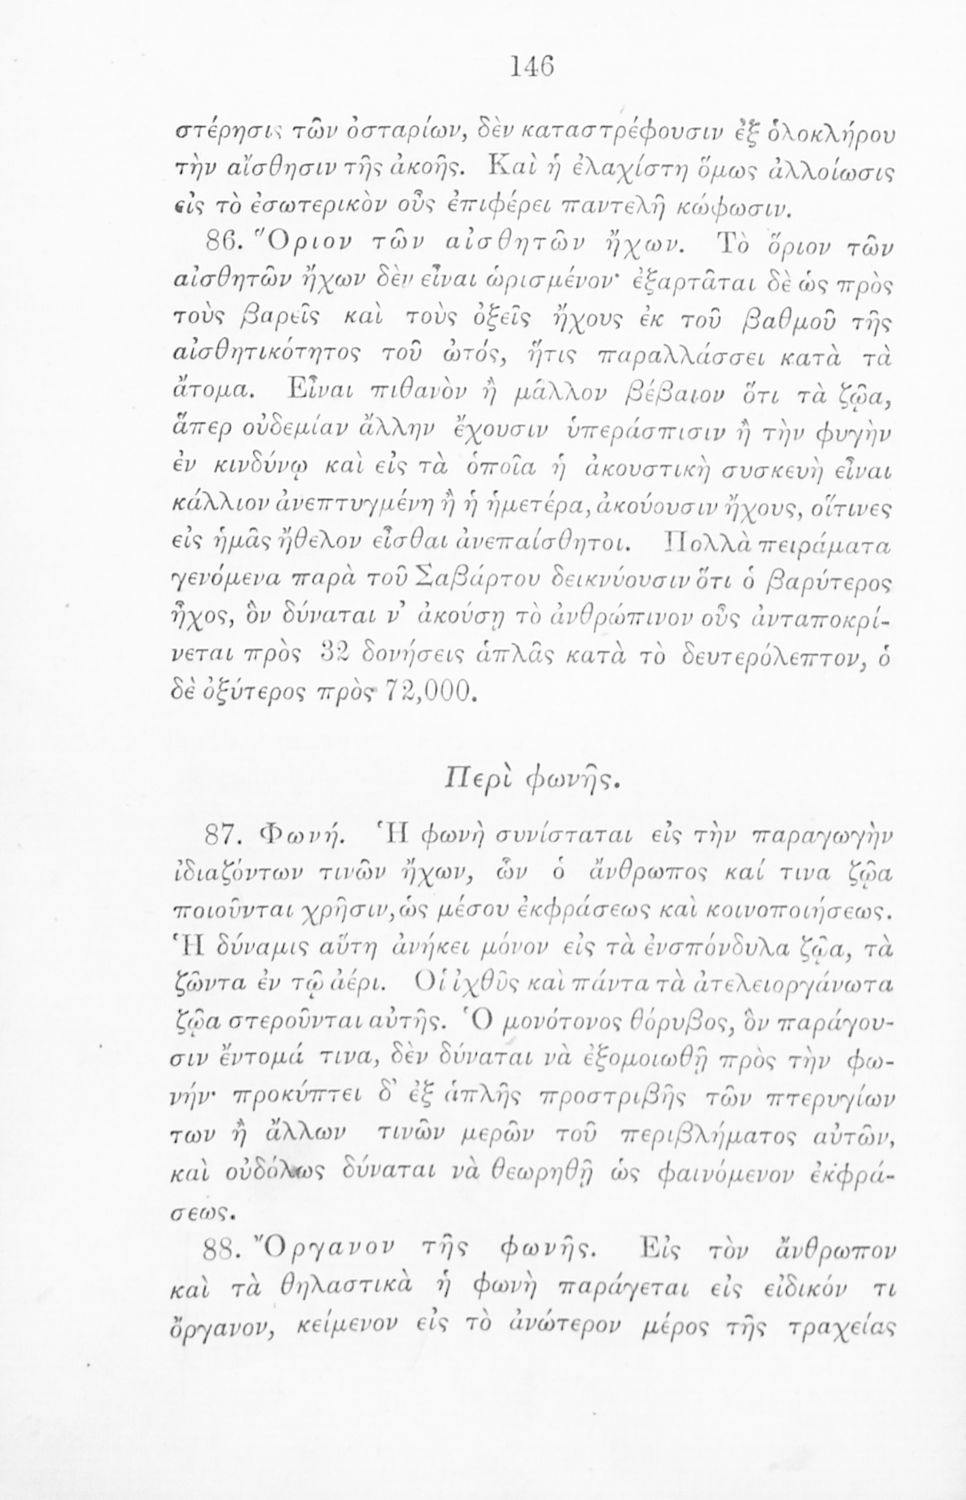 146
στέρησις τῶν ὀσταρίων, δὲν καταστρέφουσιν ἐξ ὁλοκλήρου
τὴν αἴσθησιν τῆς ἀκοῆς. Καὶ ἡ ἐλαχίστη ὅμως ἀλλοίωσις
εἰς τὸ ἐσωτερικὸν οὖς ἐπιφέρει παντελῆ κώφωσιν.
86. Ὅριον τῶν αἰσθητῶν ἤχων. Τὸ ὅριον τῶν
αἰσθητῶν ἤχων δὲν εἶναι ὡρισμένον· ἐξαρτᾶται δὲ ὡς πρὸς
τοὺς βαρεῖς καὶ τοὺς ὀξεῖς ἤχους ἐκ τοῦ βαθμοῦ τῆς
αἰσθητικότητος τοῦ ὠτός, ἥτις παραλλάσσει κατὰ τὰ
ἄτομα. Εἶναι πιθανὸν ἢ μᾶλλον βέβαιον ὅτι τὰ ζῷα,
ἅπερ οὐδεμίαν ἄλλην ἔχουσιν ὑπεράσπισιν ἢ τὴν φυγὴν
ἐν κινδύνῳ καὶ εἰς τὰ ὁποῖα ἡ ἀκουστικὴ συσκευὴ εἶναι
κάλλιον ἀνεπτυγμένη ἢ ἡ ἡμετέρα, ἀκούουσιν ἤχους, οἵτινες
εἰς ἡμᾶς ἤθελον εἶσθαι ἀνεπαίσθητοι. Πολλὰ πειράματα
γενόμενα παρὰ τοῦ Σαβάρτου δεικνύουσιν ὅτι ὁ βαρύτερος
ἦχος, ὃν δύναται ν' ἀκούσῃ τὸ ἀνθρώπινον οὖς ἀνταποκρί-
νεται πρὸς 32 δονήσεις ἁπλᾶς κατὰ τὸ δευτερόλεπτον, ὁ
δὲ ὀξύτερος πρὸς 72,000.
Περὶ φωνῆς.
87. Φωνή. Ἡ φωνὴ συνίσταται εἰς τὴν παραγωγὴν
ἰδιαζόντων τινῶν ἤχων, ὧν ὁ ἄνθρωπος καί τινα ζῷα
ποιοῦνται χρῆσιν, ὡς μέσου ἐκφράσεως καὶ κοινοποιήσεως.
Ἡ δύναμις αὕτη ἀνήκει μόνον εἰς τὰ ἐνσπόνδυλα ζῷα, τὰ
ζῶντα ἐν τῷ ἀέρι. Οἱ ἰχθῦς καὶ πάντα τὰ ἀτελειοργάνωτα
ζῷα στεροῦνται αὐτῆς. Ὁ μονότονος θόρυβος, ὃν παράγου-
σιν ἔντομά τινα, δὲν δύναται νὰ ἐξομοιωθῇ πρὸς τὴν φω-
νήν· προκύπτει δ' ἐξ ἁπλῆς προστριβῆς τῶν πτερυγίων
των ἢ ἄλλων τινῶν μερῶν τοῦ περιβλήματος αὐτῶν,
καὶ οὐδόλως δύναται νὰ θεωρηθῇ ὡς φαινόμενον ἐκφρά-
σεως.
88. Ὄργανον τῆς φωνῆς. Εἰς τὸν ἄνθρωπον
καὶ τὰ θηλαστικὰ ἡ φωνὴ παράγεται εἰς εἰδικόν τι
ὄργανον, κείμενον εἰς τὸ ἀνώτερον μέρος τῆς τραχείας